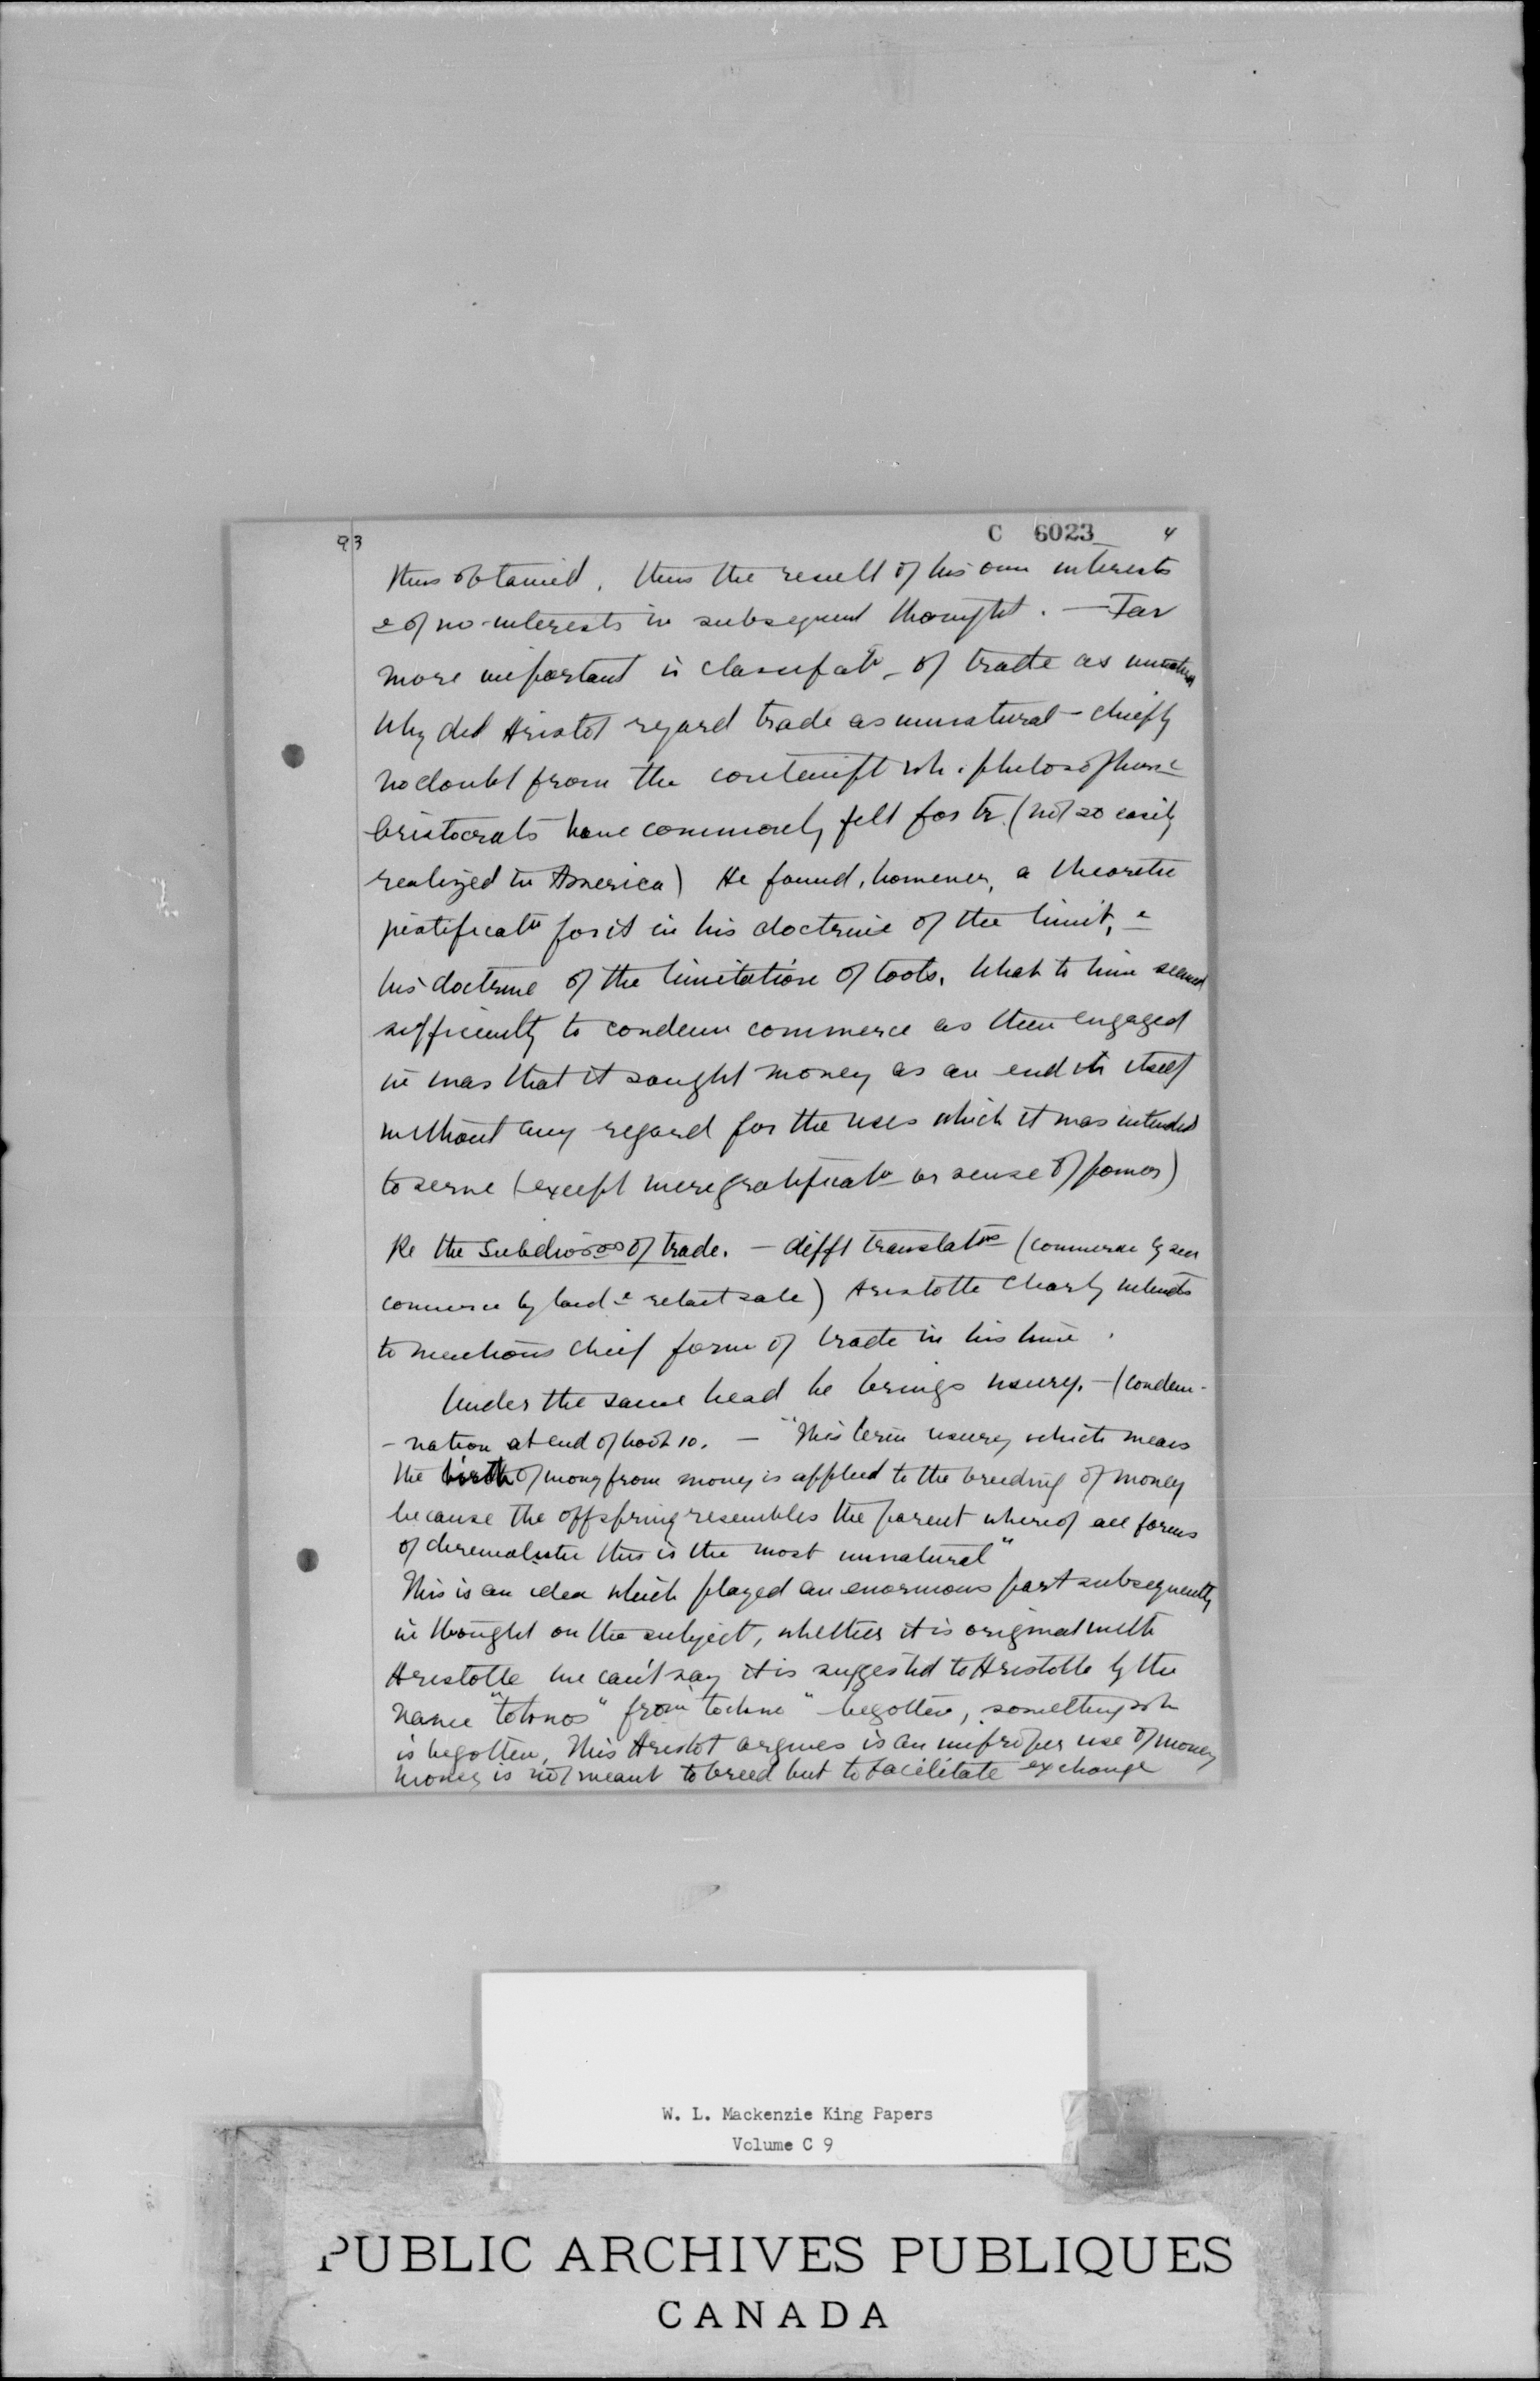 93
C 6023 4
thus obtained, thus the result of his own interests
& of no interests in subsequent thought. — Far
more important is classificatn of trade as unnatural
Why did Aristot regard trade as unnatural - chiefly
no doubt from the contempt wh. philosophers &
Aristocrats have commonly felt for tr. (not so easily
realized in America) He found, however, a theoretic
justificatn for it in his doctrine of the limit, &
his doctrine of the limitation of tools. What to him seemed
sufficiently to condemn commerce as then engaged
in was that it sought money as an end in itself
without any regard for the uses which it was intended
to serve (except mere gratificatn or sense of power)
Re the Subdivisions of trade. — difft translatns (commerce by sea
commerce by land & retail sale) Aristotle clearly intends
to mention chief form of trade in his time.
Under the same head he brings usury. — (condem-
- nation at end of book 10. — "This term usury which means
the birth of money from money is applied to the breeding of money
because the offspring resembles the parent whereof all forms
of chrematistic this is the most unnatural"
This is an idea which played an enormous part subsequently
in thought on the subject, whether it is original with
Aristotle we can't say it is suggested to Aristotle by the
name "toknos" from "tekne" begotten, something wh
is begotten, This Aristot argues is an improper use of money
money is not meant to breed but to facilitate exchange
W. L. Mackenzie King Papers
Volume C 9
PUBLIC ARCHIVES PUBLIQUES
CANADA